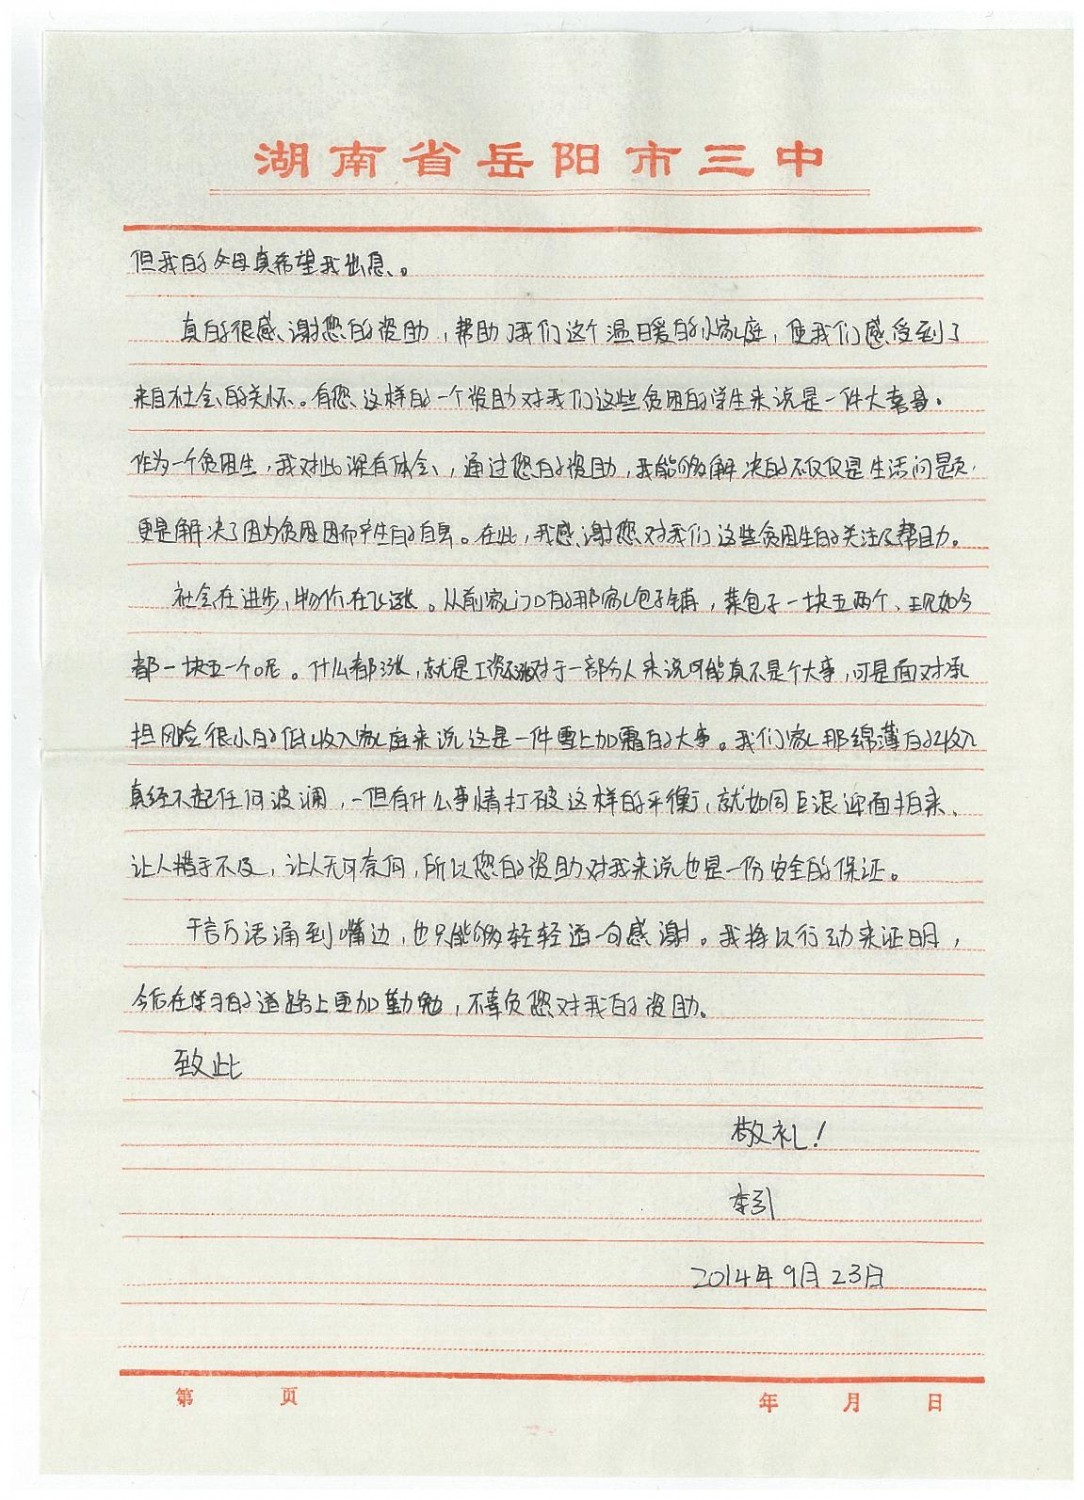 湖南省岳阳市三中
但我的父母真希望我出息。
真的很感谢您的资助，帮助了我们这个温暖的小家庭，使我们感受到了
来自社会的关怀。有您这样的一个资助对我们这些贫困的学生来说是一件大喜事。
作为一个贫困生，我对此深有体会，通过您的资助，我能够解决的不仅仅是生活问题，
更是解决了因为贫困因而产生的自卑。在此，我感谢您对我们这些贫困生的关注及帮助。
社会在进步，物价在飞涨。从前家门口的那家包子铺，菜包子一块五两个、现如今
都一块五一个呢。什么都涨，就是工资不涨对于一部分人来说可能真不是个大事，可是面对承
担风险很小的低收入家庭来说这是一件雪上加霜的大事。我们家那绵薄的收入
真经不起任何波澜，一但有什么事情打破这样的平衡，就如同巨浪迎面拍来、
让人措手不及，让人无可奈何，所以您的资助对我来说也是一份安全的保证。
千言万语涌到嘴边，也只能够轻轻道一句感谢。我将以行动来证明，
今后在学习的道路上更加勤勉，不辜负您对我的资助。
致此
敬礼！
2014年9月23日
第 页 年 月 日